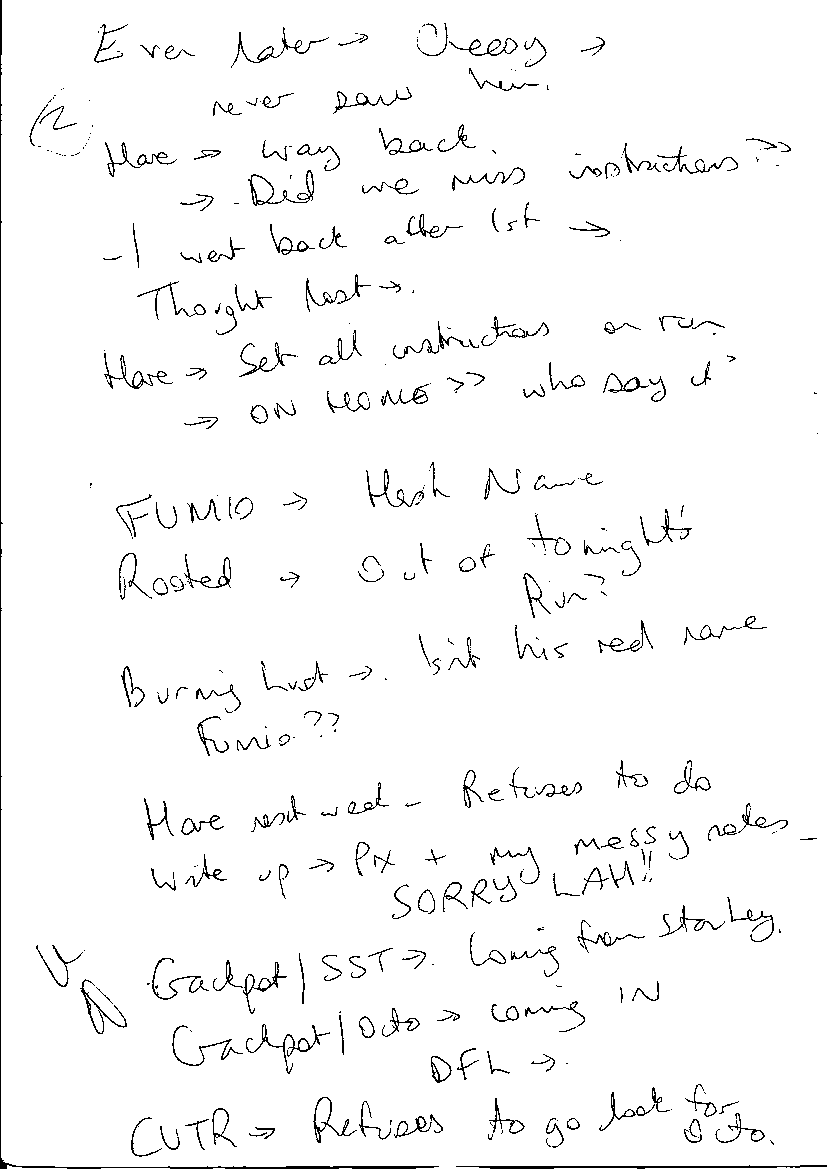 Even later → Cheesy →
never saw him.
(2)
Hare → way back.
→ Did we miss instructions??
- I went back after 1st →
Thoght lost →.
Hare → Set all instructions on run
→ ON HOME >> who say it?
FUMIO → Hash Name
Rooted → Out of tonight's
Run?
Burning →. Isn't his real name
Fumio??
Hare next week - Refuses to do
write up → PIX + my messy notes -
SORRY LAH!!
Gackpot/SST →. Coming from Stanley.
Gackpot/Octo → coming IN
DFL →.
CUTR → Refuses to go look for
Octo.